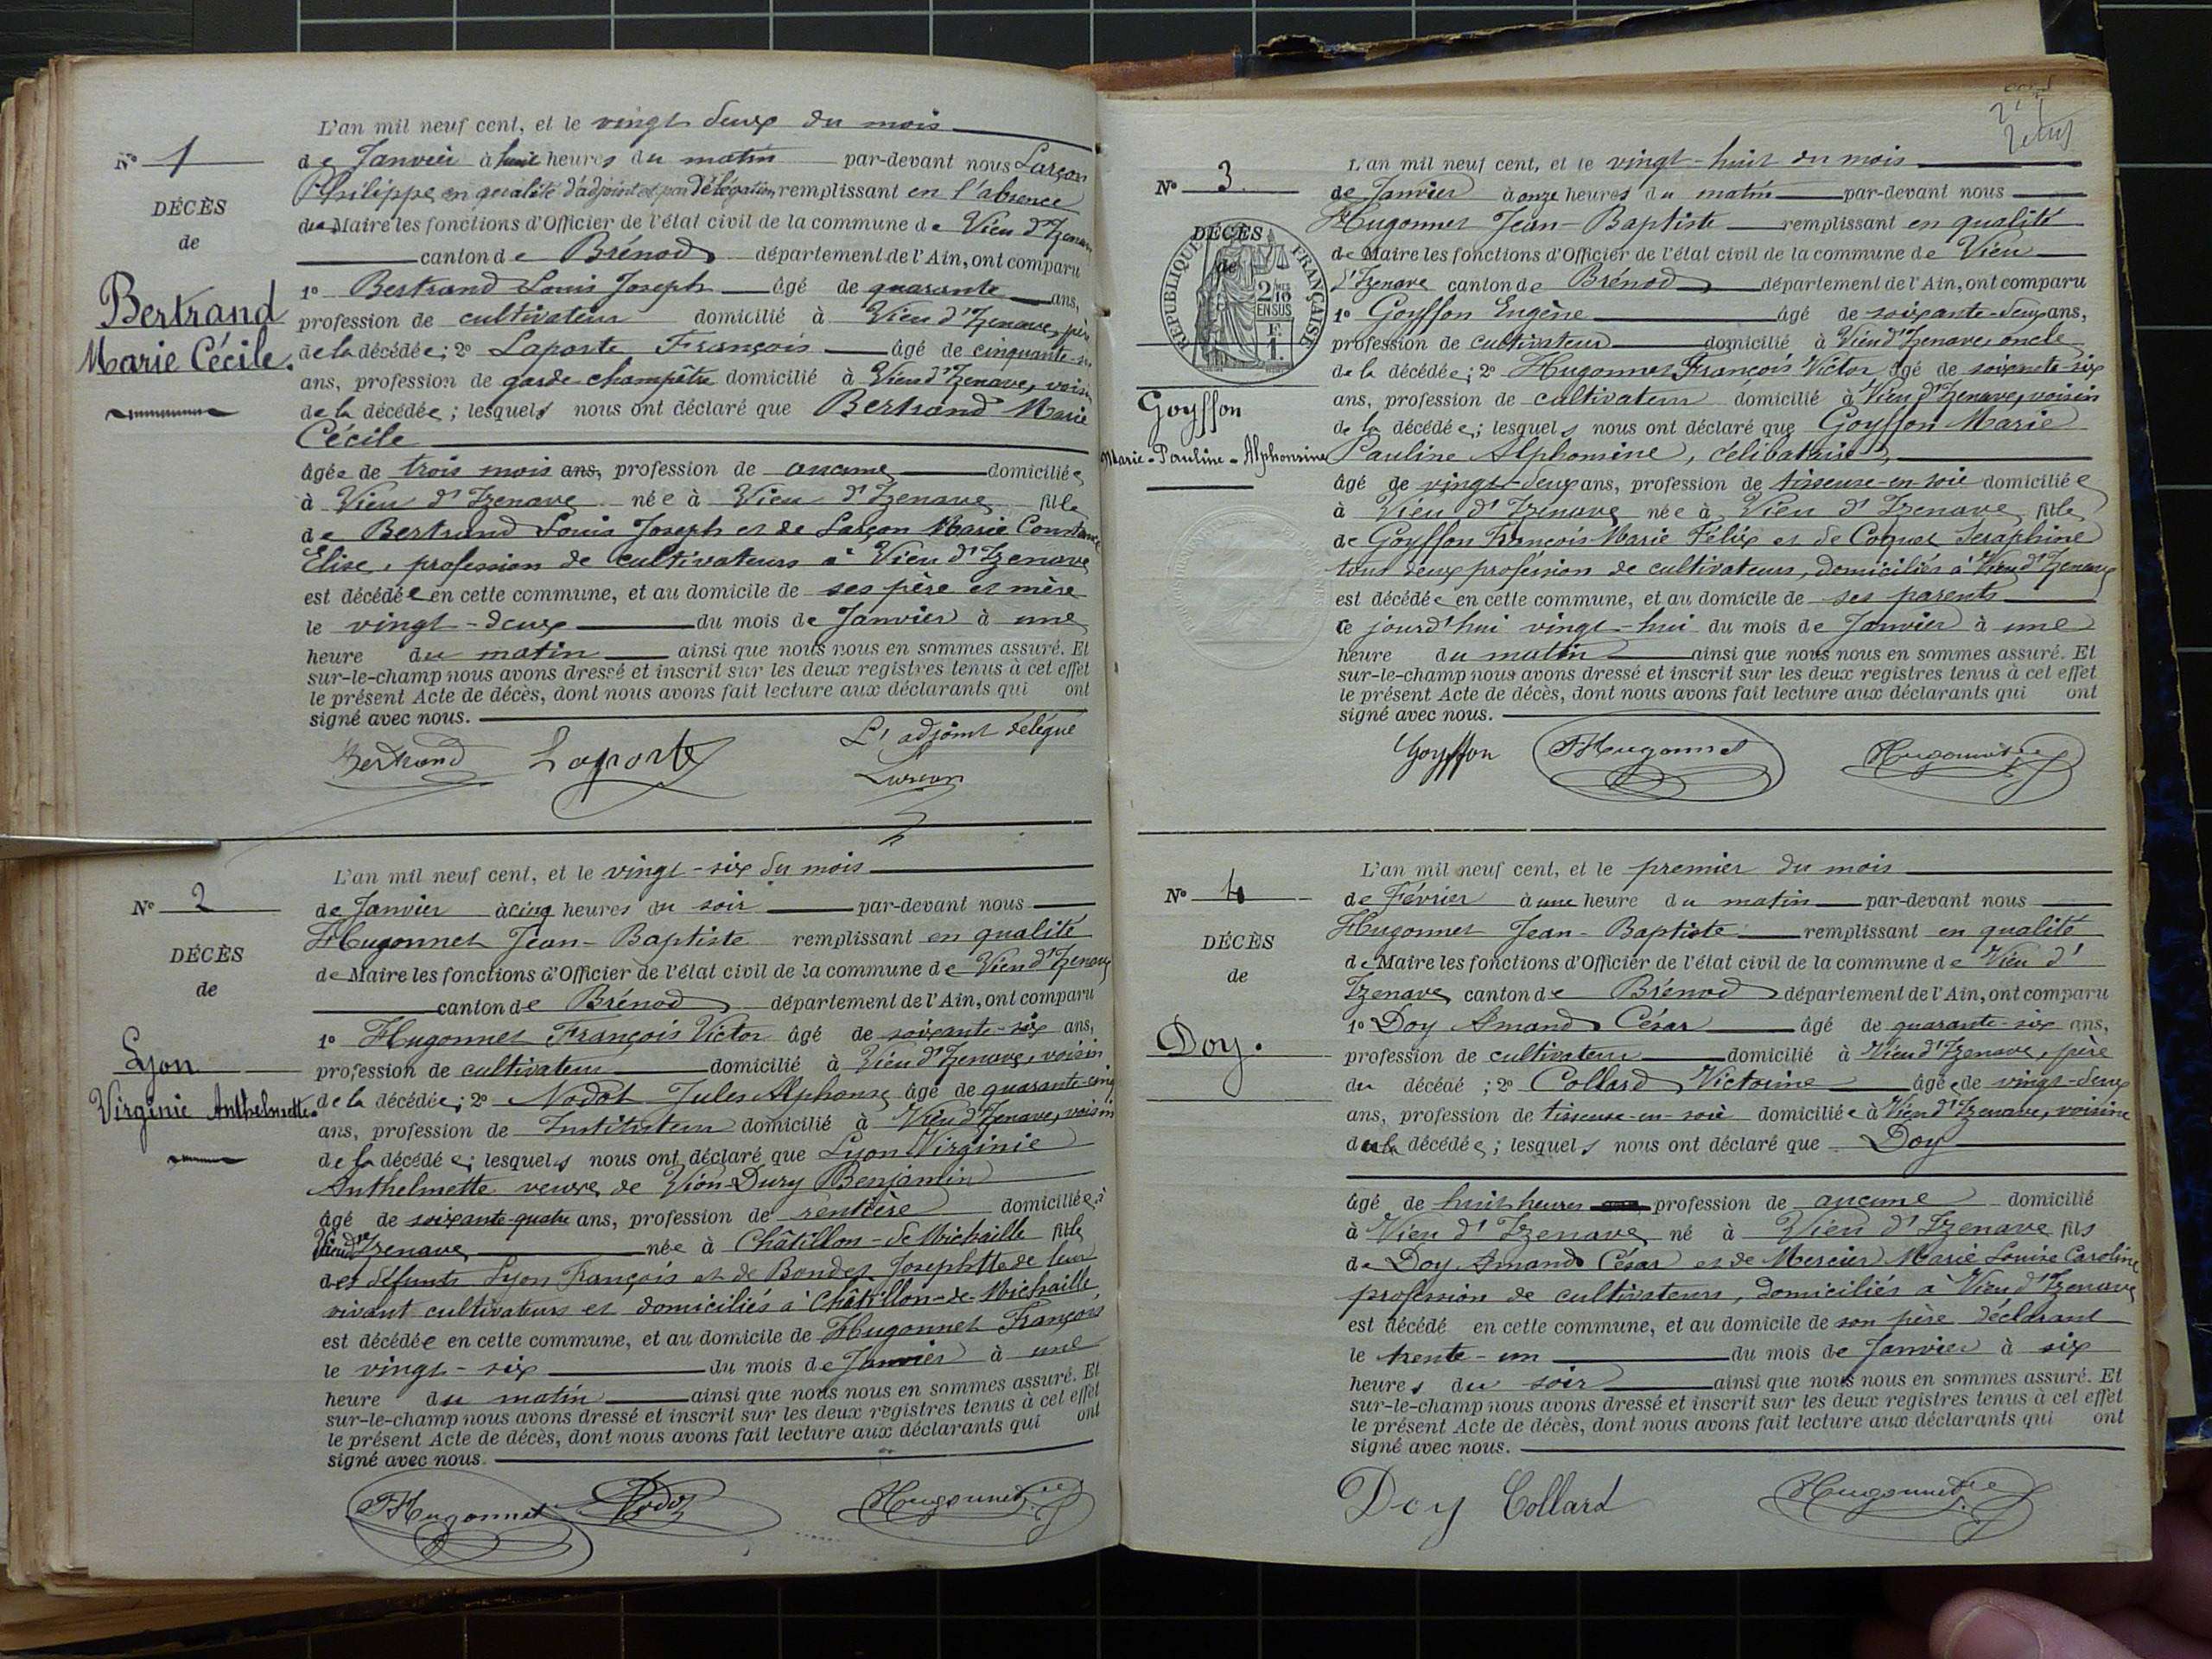 L'an mil neuf cent, et le vingt deux du mois
N° 1
de Janvier à huit heures du matin par-devant nous Larçon
Philippe, en qualité d'adjoint et par délégation remplissant en l'absence
du Maire les fonctions d'Officier de l'état civil de la commune de Vieu d'Izenave
canton de Brénod département de l'Ain, ont comparu
1° Bertrand Louis Joseph âgé de quarante ans,
profession de cultivateur domicilié à Vieu d'Izenave, père
de la décédée; 2° Laporte François âgé de cinquante-six
ans, profession de garde champêtre domicilié à Vieu d'Izenave, voisin
de la décédée; lesquels nous ont déclaré que Bertrand Marie
Cécile
DÉCÈS
de
Bertrand
Marie Cécile.
âgée de trois mois ans, profession de aucune domiciliée
à Vieu d'Izenave née à Vieu d'Izenave fille
de Bertrand Louis Joseph et de Larçon Marie Constance
Elise, profession de cultivateurs à Vieu d'Izenave
est décédée en cette commune, et au domicile de ses père et mère
le vingt-deux du mois de Janvier à une
heure du matin ainsi que nous nous en sommes assuré. Et
sur-le-champ nous avons dressé et inscrit sur les deux registres tenus à cet effet
le présent Acte de décès, dont nous avons fait lecture aux déclarants qui ont
signé avec nous.
L'adjoint délégué
Bertrand Laporte Larçon
L'an mil neuf cent, et le vingt-six du mois
N° 2
de Janvier à cinq heures du soir par-devant nous
Hugonnet Jean-Baptiste remplissant en qualité
de Maire les fonctions d'Officier de l'état civil de la commune de Vieu d'Izenave
canton de Brénod département de l'Ain, ont comparu
1° Hugonnet François Victor âgé de soixante-six ans,
profession de cultivateur domicilié à Vieu d'Izenave, voisin
de la décédée; 2° Nodot Jules Alphonse âgé de quarante-cinq
ans, profession de Instituteur domicilié à Vieu d'Izenave, voisin
de la décédée; lesquels nous ont déclaré que Lyon Virginie
Anthelmette veuve de Vion-Dury Benjamin
DÉCÈS
de
Lyon
Virginie Anthelmette.
âgé de soixante-quatre ans, profession de rentière domiciliée à
Vieu d'Izenave née à Châtillon-de-Michaille fille
des défunts Lyon François et de Bondet Josephtte de leur
vivant cultivateurs et domiciliés à Châtillon-de-Michaille
est décédée en cette commune, et au domicile de Hugonnet François
le vingt-six du mois de Janvier à une
heure du matin ainsi que nous nous en sommes assuré. Et
sur-le-champ nous avons dressé et inscrit sur les deux registres tenus à cet effet
le présent Acte de décès, dont nous avons fait lecture aux déclarants qui ont
signé avec nous.
FHugonnet Nodot Hugonnet
L'an mil neuf cent, et le vingt-huit du mois
N° 3
de Janvier à onze heures du matin par-devant nous
Hugonnet Jean-Baptiste remplissant en qualité
de Maire les fonctions d'Officier de l'état civil de la commune de Vieu
d'Izenave canton de Brénod département de l'Ain, ont comparu
1° Goyffon Eugène âgé de soixante-deux ans,
profession de cultivateur domicilié à Vieu d'Izenave, oncle
de la décédée; 2° Hugonnet François Victor âgé de soixante-six
ans, profession de cultivateur domicilié à Vieu d'Izenave, voisin
de la décédée; lesquels nous ont déclaré que Goyffon Marie
Pauline Alphonsine, célibataire,
DÉCÈS
de
RÉPUBLIQUE FRANÇAISE
2/10 EN SUS
1 F.
Goyffon
Marie-Pauline-Alphonsine
âgé de vingt-deux ans, profession de tisseuse-en-soie domiciliée
à Vieu d'Izenave née à Vieu d'Izenave fille
de Goyffon François Marie Félix et de Coquet Seraphine
tous deux profession de cultivateurs, domiciliés à Vieu d'Izenave
est décédée en cette commune, et au domicile de ses parents
ce jourd'hui vingt-hui du mois de Janvier à une
heure du matin ainsi que nous nous en sommes assuré. Et
sur-le-champ nous avons dressé et inscrit sur les deux registres tenus à cet effet
le présent Acte de décès, dont nous avons fait lecture aux déclarants qui ont
signé avec nous.
Goyffon FHugonnet Hugonnet
L'an mil neuf cent, et le premier du mois
N° 4
de Février à une heure du matin par-devant nous
Hugonnet Jean-Baptiste remplissant en qualité
de Maire les fonctions d'Officier de l'état civil de la commune de Vieu d'
Izenave canton de Brénod département de l'Ain, ont comparu
1° Doy Amand César âgé de quarante-six ans,
profession de cultivateur domicilié à Vieu d'Izenave, père
du décédé; 2° Collard Victorine âgée de vingt-deux
ans, profession de tisseuse-en-soie domiciliée à Vieu d'Izenave, voisine
de la décédée; lesquels nous ont déclaré que Doy
DÉCÈS
de
Doy.
âgé de huit heures profession de aucune domicilié
à Vieu d'Izenave né à Vieu d'Izenave fils
de Doy Amand César et de Mercier Marie Louise Caroline
profession de cultivateurs, domiciliés à Vieu d'Izenave
est décédé en cette commune, et au domicile de son père déclarant
le trente-un du mois de Janvier à six
heures du soir ainsi que nous nous en sommes assuré. Et
sur-le-champ nous avons dressé et inscrit sur les deux registres tenus à cet effet
le présent Acte de décès, dont nous avons fait lecture aux déclarants qui ont
signé avec nous.
Doy Collard Hugonnet